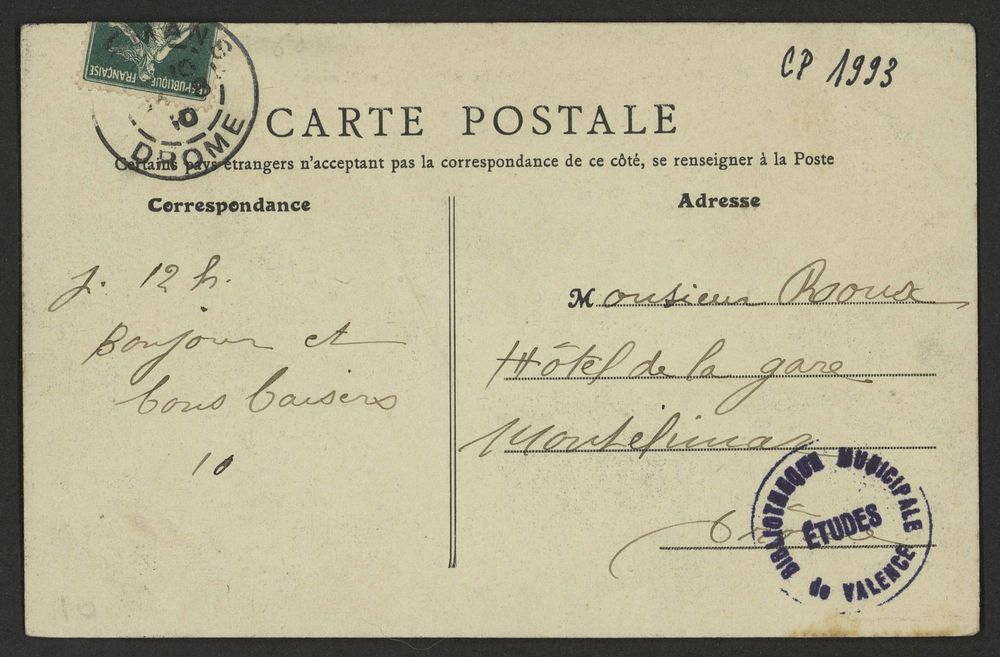 RÉPUBLIQUE FRANÇAISE
10
DROME
CP 1993
CARTE POSTALE
Certains pays étrangers n'acceptant pas la correspondance de ce côté, se renseigner à la Poste
Correspondance
J. 12 h.
Bonjour et
bons baisers
10
Adresse
Monsieur Roux
Hôtel de la gare
Montélimar
Drôme
BIBLIOTHEQUE MUNICIPALE
ÉTUDES
de VALENCE
10